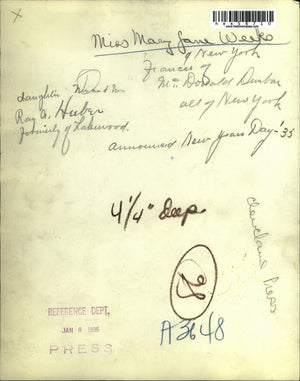 Miss Mary Jane Weeks
of New York
Fiancee of
Mr. Donald Dunbar
all of New York
daughter Mr and Mrs.
Ray A. Huber
formerly of Lakewood.
announced New Years Day - '35
4 1/4" deep
Cleveland Press
REFERENCE DEPT.
JAN 6 1935
PRESS
A3648